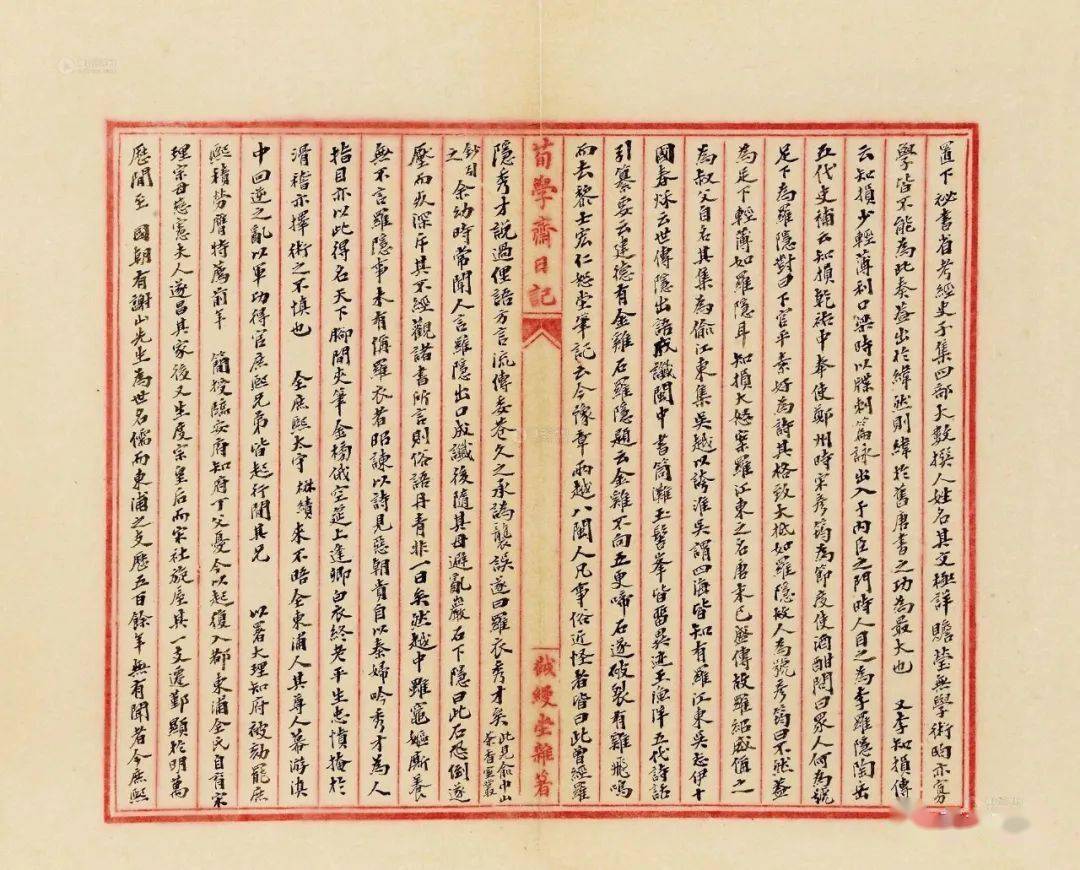 置下祕書省考經史子集四部大數撰人姓名其文極詳贍瑩無學術昫亦寡
學皆不能為此奏葢出於緯然則緯於舊唐書之功為最大也　又李知損傳
云知損少輕薄利口梁時以牒刺篇詠出入于內臣之門時人目之為李羅隱陶岳
五代史補云知損乾祐中奉使鄭州時宋彥筠為節度使酒酣問曰眾人何為號
足下為羅隱對曰下官平素好為詩其格致大抵如羅隱故人為號彥筠曰不然葢
為足下輕薄如羅隱耳知損大怒案羅江東之名唐末已盛傳故羅紹威值之
為叔父自名其集為偷江東集吳越以誇淮吳謂四海皆知有羅江東吳志伊十
國春秋云世傳隱出語成讖閩中書筒灘玉髻峯皆留異迹王漁洋五代詩話
引纂要云建德有金雞石羅隱題云金雞不向五更啼石遂破裂有雞飛鳴
而去黎士宏仁恕堂筆記云今豫章兩越八閩人凡事俗近怪者皆曰此曾經羅
荀學齋日記
越縵堂雜著
隱秀才說過俚語方言流傳委巷久之承譌襲誤遂曰羅衣秀才矣
此見俞中山
茶香室叢
鈔引
之
余幼時常聞人言羅隱出口成讖後隨其母避亂巖石下隱曰此石恐倒遂
壓而歿深斥其不經觀諸書所言則俗語丹青非一日矣然越中雖竈嫗廝養
無不言羅隱事未有偁羅衣者昭諫以詩見惡朝貴自以秦婦吟秀才為人
指目亦以此得名天下腳間夾筆金榜俄空筵上逢卿白衣終老平生忠憤掩於
滑稽亦擇術之不慎也　全庶熙太守楙績來不晤全東浦人其尊人幕游滇
中回逆之亂以軍功得官庶熙兄弟皆起行間其兄　以署大理知府被劾罷庶
熙積勞薦特薦前年　簡授臨安府知府丁父憂今以起復入都東浦全氏自育宋
理宗母慈憲夫人遂昌其家後又生度宗皇后而宋社旋屋其一支遷鄞顯於明萬
歷間至　國朝有謝山先生為世名儒而東浦之支歷五百餘年無有聞者今庶熙